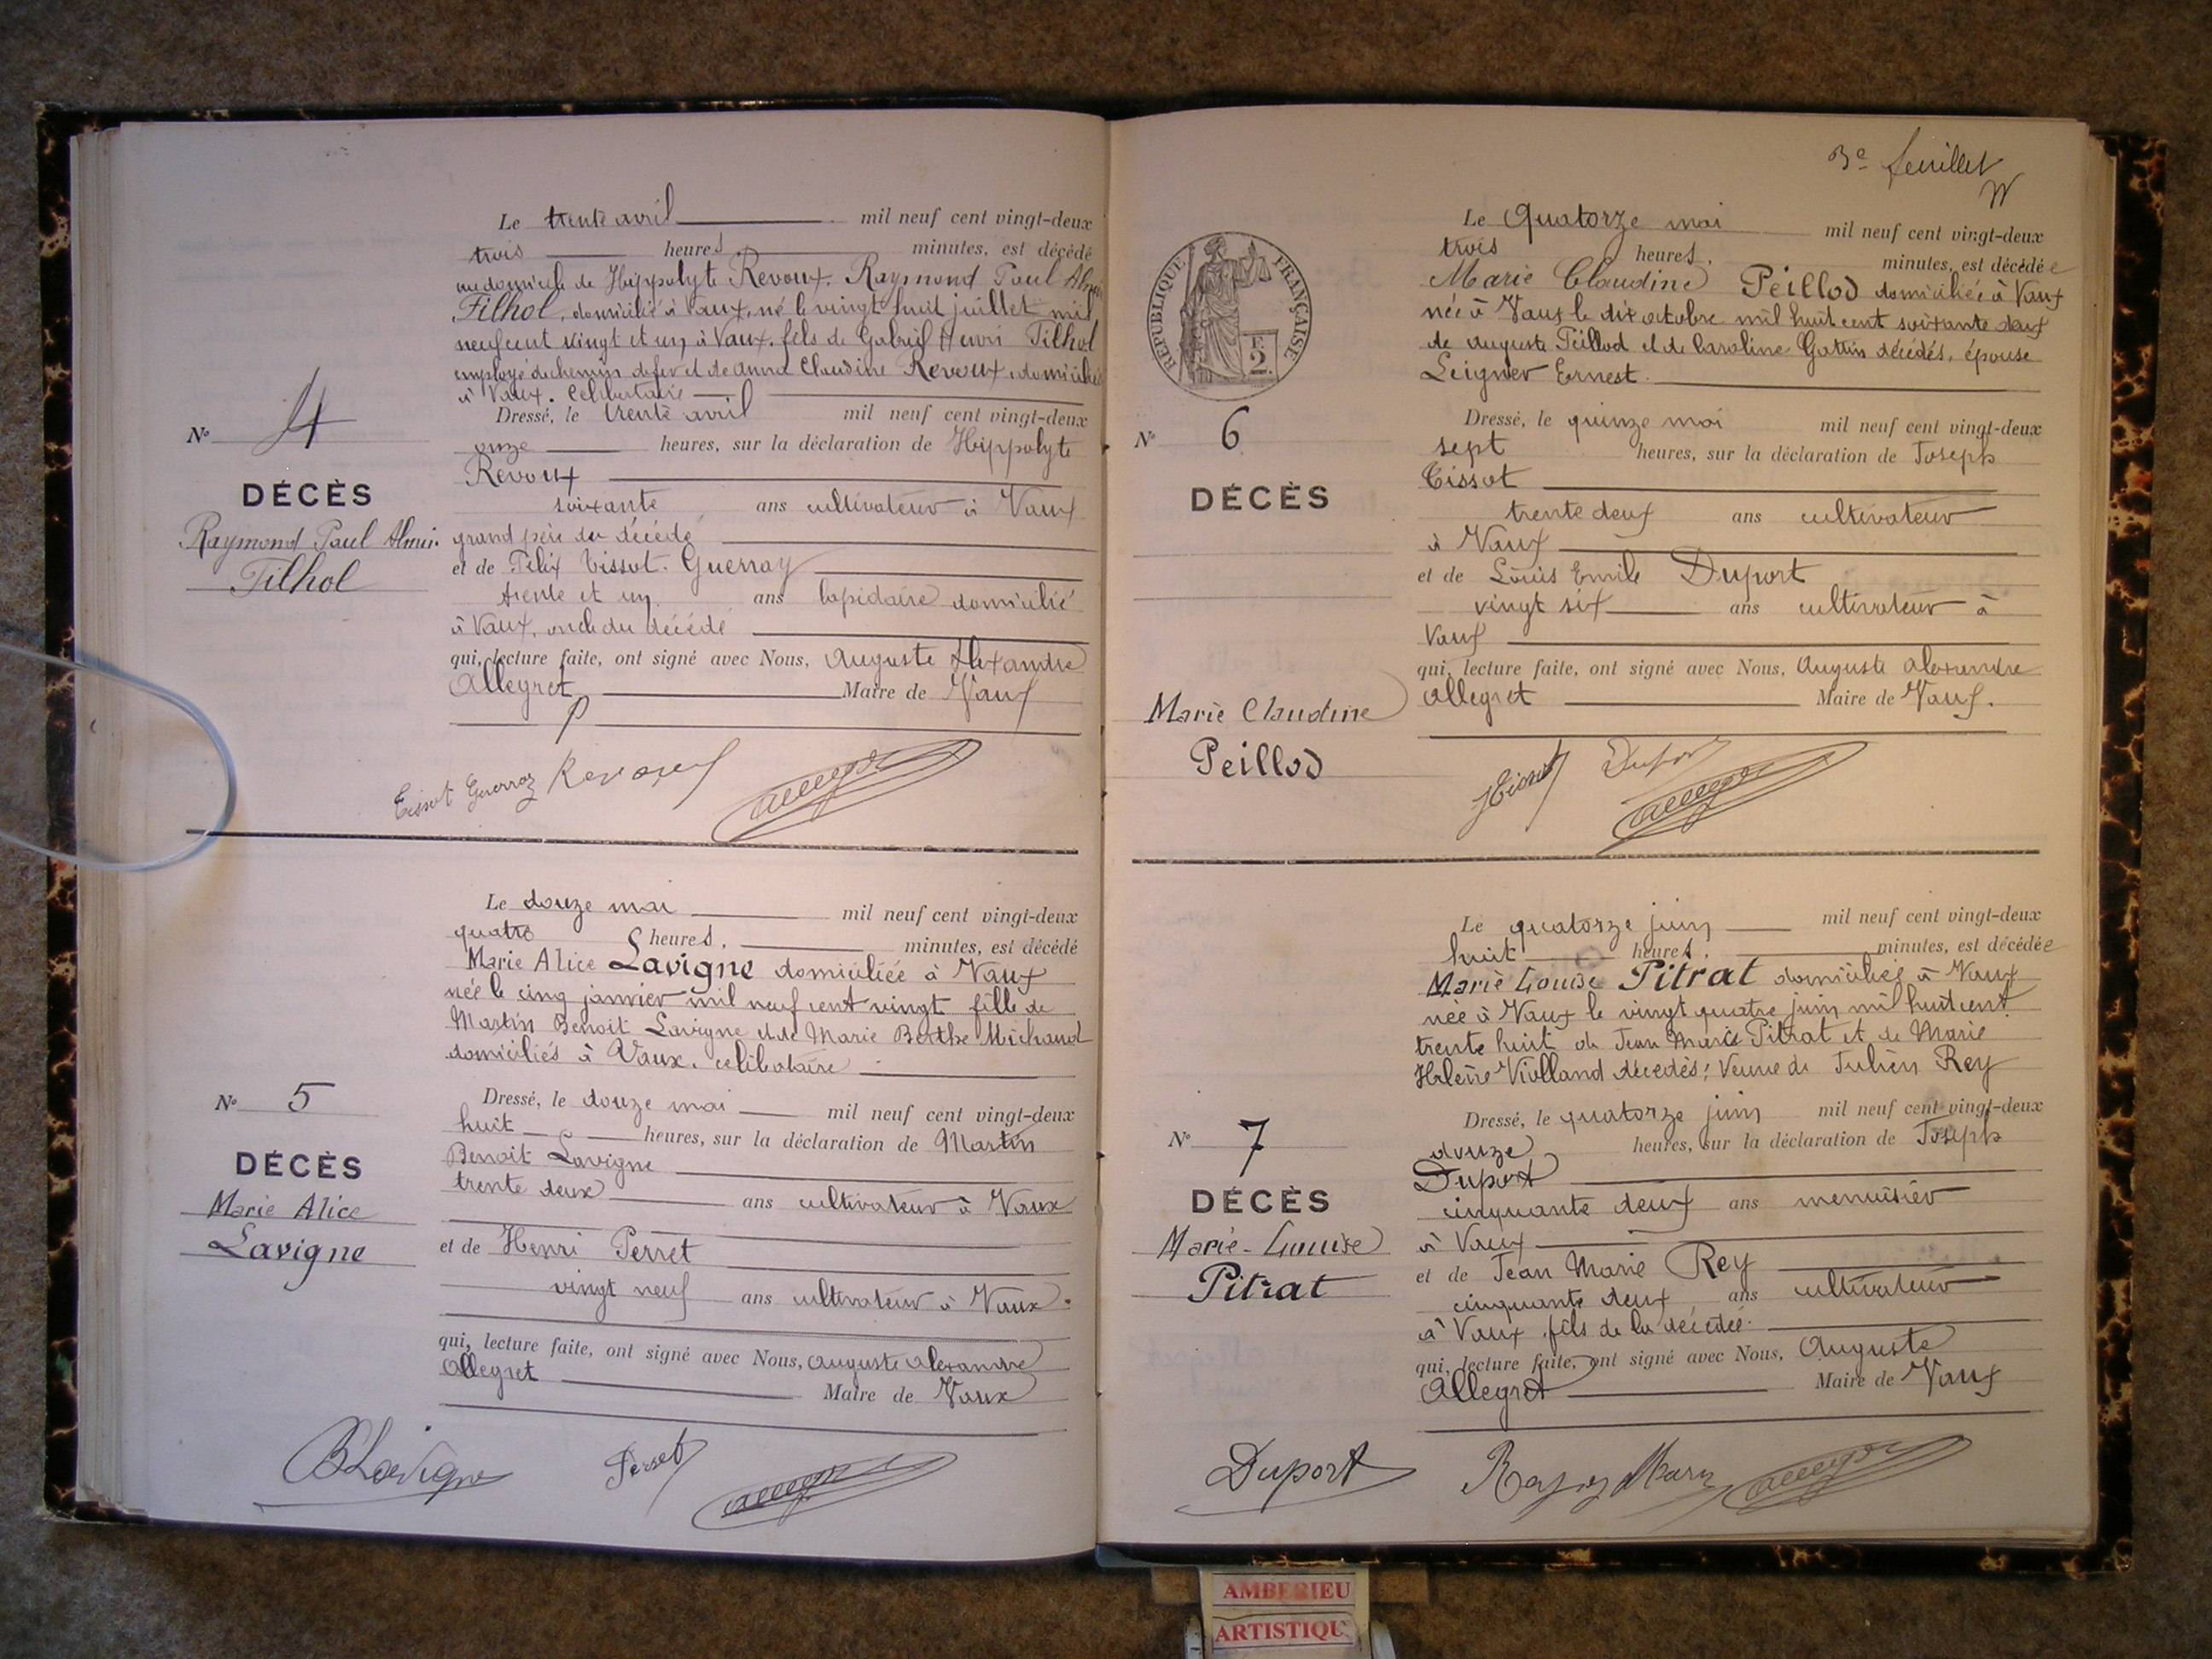 Le trente avril mil neuf cent vingt-deux
trois heures minutes, est décédé
au domicile de Hippolyte Revoux. Raymond Paul
Filhol, domicilié à Vaux, né le vingt huit juillet mil
neuf cent vingt et un à Vaux. fils de Gabriel Henri Filhol
employé de chemin de fer et de anna Claudine Revoux, domiciliés
à Vaux. Célibataire
Dressé, le trente avril mil neuf cent vingt-deux
onze heures, sur la déclaration de Hippolyte
Revoux
soixante ans cultivateur à Vaux
grand père du décédé
et de Félix Tissot. Guerraz
trente et un ans lapidaire domicilié
à Vaux, oncle du décédé
qui, lecture faite, ont signé avec Nous, Auguste Alexandre
Allegret Maire de Vaux
No 4
DÉCÈS
Raymond Paul
Filhol
Tissot Guerraz Revoux Allegret
Le douze mai mil neuf cent vingt-deux
quatre heures, minutes, est décédé
Marie Alice Lavigne domiciliée à Vaux
née le cinq janvier mil neuf cent vingt fille de
Martin Benoit Lavigne et de Marie Berthe Michaud
domiciliés à Vaux. célibataire
Dressé, le douze mai mil neuf cent vingt-deux
huit heures, sur la déclaration de Martin
Benoit Lavigne
trente deux ans cultivateur à Vaux
et de Henri Perret
vingt neuf ans cultivateur à Vaux.
qui, lecture faite, ont signé avec Nous, Auguste Alexandre
Allegret Maire de Vaux
No 5
DÉCÈS
Marie Alice
Lavigne
BLavigne Perret Allegret
3e feuillet
RÉPUBLIQUE FRANÇAISE
F.
2.
Le Quatorze mai mil neuf cent vingt-deux
trois heures, minutes, est décédée
Marie Claudine Peillod domiciliée à Vaux
née à Vaux le dix octobre mil huit cent soixante deux
de Auguste Peillod et de Caroline Gottin décédés, épouse
Leigner Ernest.
Dressé, le quinze mai mil neuf cent vingt-deux
sept heures, sur la déclaration de Joseph
Tissot
trente deux ans cultivateur
à Vaux
et de Louis Emile Duport
vingt six ans cultivateur à
Vaux
qui, lecture faite, ont signé avec Nous, Auguste Alexandre
Allegret Maire de Vaux.
No 6
DÉCÈS
Marie Claudine
Peillod
JTissot Duport Allegret
Le quatorze juin mil neuf cent vingt-deux
huit heures, minutes, est décédée
Marie Louise Pitrat domiciliée à Vaux
née à Vaux le vingt quatre juin mil huit cent
trente huit de Jean Marie Pitrat et de Marie
Helène Violland décédés; Veuve de Julien Rey
Dressé, le quatorze juin mil neuf cent vingt-deux
douze heures, sur la déclaration de Joseph
Duport
cinquante deux ans menuisier
à Vaux
et de Jean Marie Rey
cinquante deux ans cultivateur
à Vaux fils de la décédée.
qui, lecture faite, ont signé avec Nous, Auguste
Allegret Maire de Vaux
No 7
DÉCÈS
Marie-Louise
Pitrat
Duport Allegret
AMBERIEU
ARTISTIQU